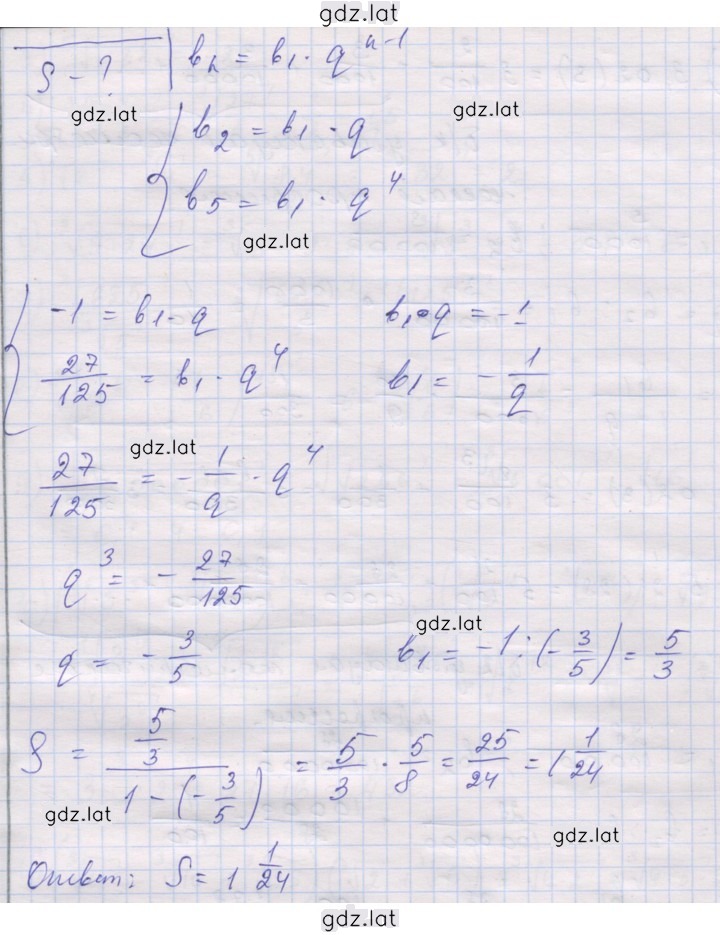 gdz.lat
S - ? bₙ = b₁ · qⁿ⁻¹
gdz.lat gdz.lat
{ b₂ = b₁ · q
b₅ = b₁ · q⁴
gdz.lat
{ -1 = b₁ · q b₁ · q = -1
27/125 = b₁ · q⁴ b₁ = - 1/q
gdz.lat
27/125 = - 1/q · q⁴
q³ = - 27/125
gdz.lat
q = - 3/5 b₁ = -1 : (- 3/5) = 5/3
S = (5/3)/(1 - (- 3/5)) = 5/3 · 5/8 = 25/24 = 1 1/24
gdz.lat gdz.lat
Ответ: S = 1 1/24
gdz.lat